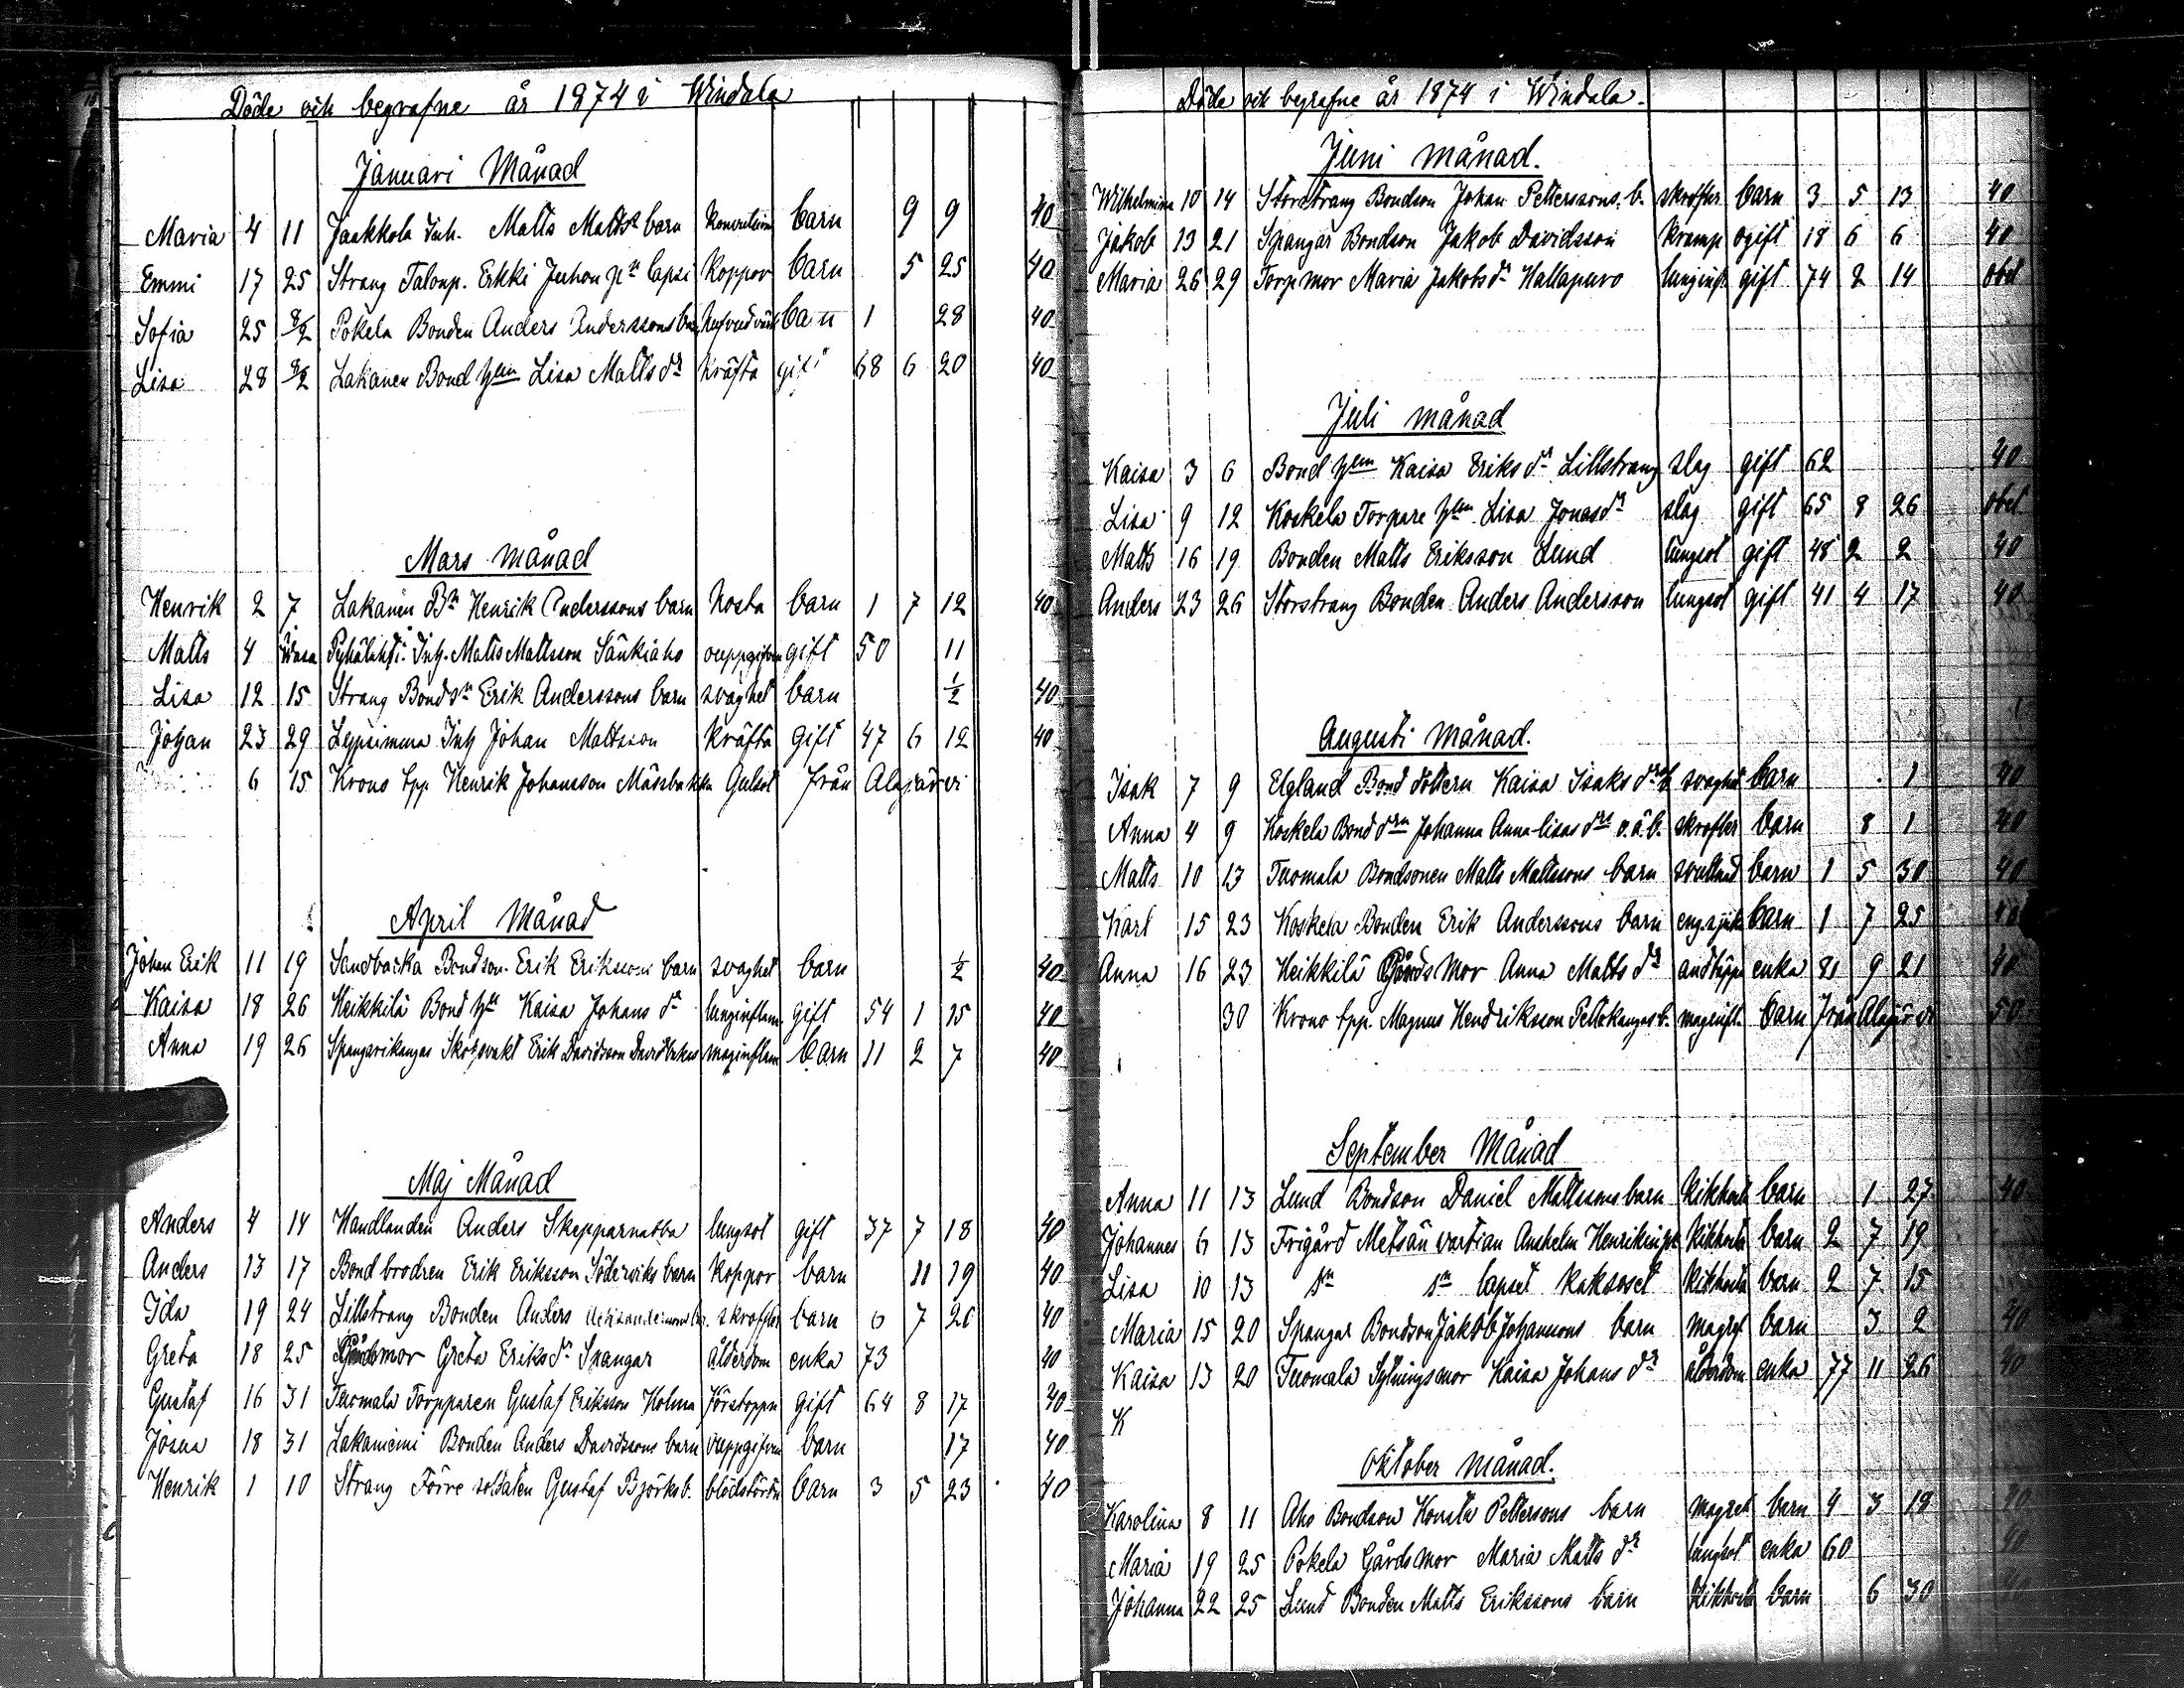 Döde och begrafne år 1874 i Windala
Januari Månad
Maria 4 11 Jaakkola Inh. Matts Matts barn barn 9 9 40
Emmi 17 25 Strang Talonp. Erkki Juhon pn lapsi Koppor barn 5 25 40
Sofia 25 8/2 Pokela Bonden Anders Anderssons barn barn 1 28 40
Lisa 28 8/2 Lakanen Bond hem Lisa Matts dr Kräfta gift 68 6 20 40
Mars månad
Henrik 2 7 Lakanen Bn Henrik Anderssons barn Hosta barn 1 7 12 40
Matts 4 Wasa Pyhälahti Inh. Matts Mattsson Sänkiaho ouppgifven gift 50 11
Lisa 12 15 Strang Bondsn Erik Anderssons barn svaghet barn 1/2 40
Johan 23 29 Inh Johan Mattsson Kräfta gift 47 6 12 40
6 15 Krono tpp. Henrik Johansson Gulsot från Alajärvi
April Månad
Johan Erik 11 19 Sandbacka Bondson Erik Eriksson barn svaghet barn 1/2 40
Kaisa 18 26 Heikkilä Bond hu Kaisa Johans dr lunginflam. gift 54 1 15 40
Anna 19 26 Spangarikangas Skogsvakt Erik Davidsson maginflam barn 11 2 7 40
Maj Månad
Anders 4 14 Handlanden Anders Skepparnabba lungsot gift 37 7 18 40
Anders 13 17 Bond brodren Erik Eriksson Söderviks barn Koppor barn 11 19 40
Ida 19 24 Lillstrang Bonden Anders skrofler barn 6 7 26 40
Greta 18 25 Gårdsmor Greta Eriks dr Spangar ålderdom enka 73 40
Gustaf 16 31 Tuomala Torpparen Gustaf Eriksson Holma förstoppn gift 64 8 17 40
Josua 18 31 Lakaniemi Bonden Anders Davidssons barn ouppgifven barn 17 40
Henrik 1 10 Strang Förre soldaten Gustaf Björks b. blodstörtn barn 3 5 23 40
Döde och begrafne år 1874 i Windala.
Juni månad.
Wilhelmina 10 14 Storstrang Bondson Johan Petterssons b. skrofler barn 3 5 13 40
Jakob 13 21 Spangar Bondson Jakob Davidsson kramp ogift 18 6 6 40
Maria 26 29 Torp mor Maria Jakobs dr Hallapuro lunginfl. gift 74 2 14 obet
Juli månad
Kaisa 3 6 Bond hem Kaisa Eriks dr Lillstrang slag gift 62 40
Lisa 9 12 Koskela Torpare hem Lisa Jonasdr slag gift 65 8 26 obet
Matts 16 19 Bonden Matts Eriksson Lund lungsot gift 48 2 2 40
Anders 23 26 Storstrang Bonden Anders Andersson lungsot gift 41 4 17 40
Augusti månad.
Isak 7 9 Elgland Bond dottern Kaisa Isaks drs b svaghet barn 1 40
Anna 4 9 Koskela Bond drn Johanna Annalisas drs o.ä.b. skrofler barn 8 1 40
Matts 10 13 Tuomala Bondsonen Matts Mattssons barn barn 1 5 30 40
Karl 15 23 Koskela Bonden Erik Anderssons barn eng.sjuka barn 1 7 25 40
Anna 16 23 Heikkilä Gårdsmor Anna Matts dr andtäppa enka 81 9 21 40
30 Krono tpp. Magnus Hendriksson Peltokangas b. maginfl. barn från Alajärvi 50
September Månad
Anna 11 13 Lund Bondson Daniel Mattssons barn Kikhosta barn 1 27 40
Johannes 6 13 Frigård Metsän vartian Anshelm Henrikin pn Kikhosta barn 2 7 19
Lisa 10 13 sn sn lapset kaksoset kikhosta barn 2 7 15
Maria 15 20 Spangar Bondson Jakob Johanssons barn magref barn 3 2 40
Kaisa 13 20 Tuomala Sytningsmor Kaisa Johans dr ålderdom enka 77 11 26 40
K
Oktober månad.
Karolina 8 11 Aho Bondson Konsta Petterssons barn magref barn 4 3 18 20
Maria 19 25 Pokela Gårdsmor Maria Matts dr lungsot enka 60 40
Johanna 22 25 Lund Bonden Matts Erikssons barn Kikhosta barn 6 30